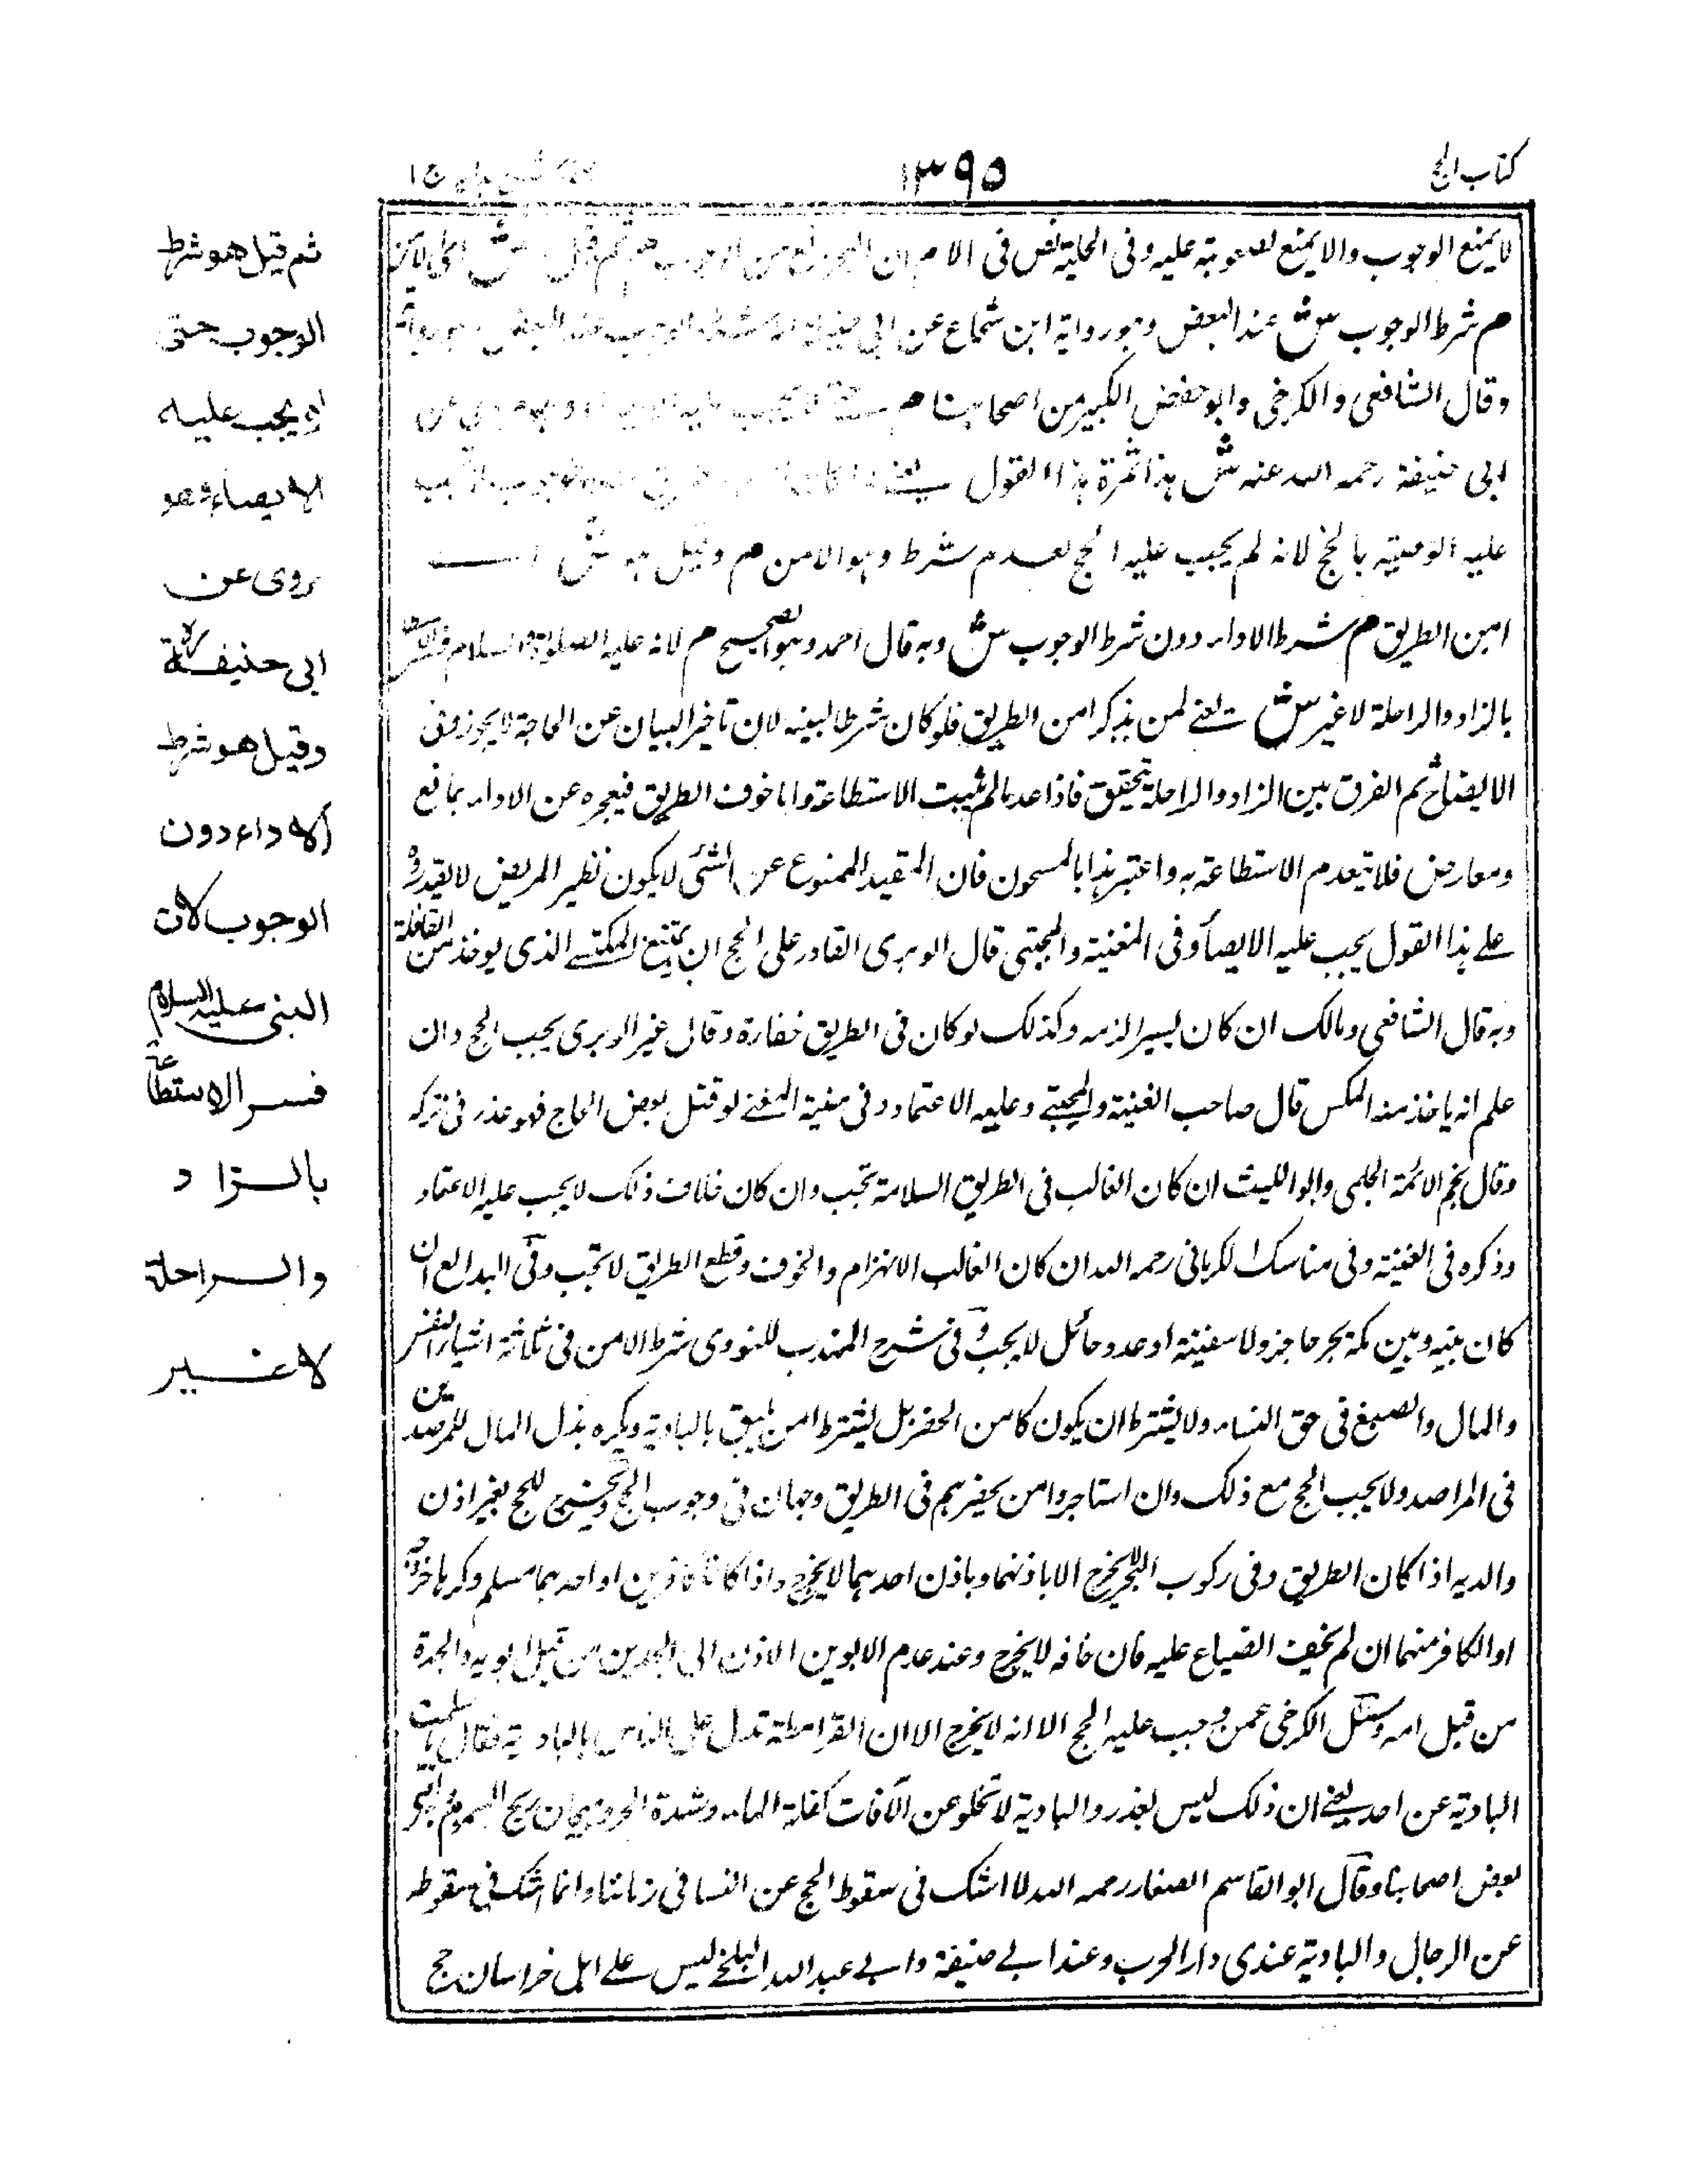 كتاب الحج
١٣٩٥
لا يمنع الوجوب والا يمنع لصعوبة عليه وفى الحلية نص فى الام ان البحر
م شرط الوجوب ش عند البعض وهو رواية ابن شجاع عن ابى
وقال الشافعى والكرخى وابو حفص الكبير من اصحابنا م
ابى حنيفة رحمه الله عنه ش هذا ثمرة هذا القول يعنے
عليه الوصية بالحج لانه لم يجب عليه الحج لعدم شرط وهو الامن م وقيل هو ش
امن الطريق م شرط الاداء دون شرط الوجوب ش وبه قال احمد وهو الصحيح م لانه عليه الصلوة والسلام فسر
بالزاد والراحلة لا غير ش يعنے لمن يذكر امن الطريق فلو كان شرطا لبينه لان تاخير البيان عن الحاجة لا يجوز وفى
الايضاح ثم الفرق بين الزاد والراحلة تحقيق فاذا عدما لم يثبت الاستطاعة واما خوف الطريق فيعجزه عن الاداء بمانع
ومعارض فلا تعدم الاستطاعة به واعتبر هذا بالمسجون فان المقيد الممنوع عن الشئ لا يكون نظير المريض لا يقدر و
علے هذا القول يجب عليه الايصاء وفى المغنية والمجتبى قال الوبرى القادر على الحج ان يمتنع المكس الذى يوخذ من القافلة
وبه قال الشافعى ومالك ان كان يسيرا لزمه وكذلك لو كان فى الطريق خفارة وقال غير الوبرى يجب الحج وان
علم انه ياخذ منه المكس قال صاحب الغنية والمجتبے وعليه الاعتماد وفى منية المفتے لو قتل بعض الحاج فهو عذر فى تركه
وقال نجم الائمة الحلمى وابو الليث ان كان الغالب فى الطريق السلامة تجب وان كان خلاف ذلك لا يجب عليه الاعتماد
وذكره فى الغنية وفى مناسك الكرمانى رحمه الله ان كان الغالب الانهزام والخوف وقطع الطريق لا تجب وفى البدائع ان
كان بينه وبين مكة بحر حاجز ولا سفينة او عدو حائل لا يجب وفى شرح المهذب للنووى شرط الامن فى ثلاثة اشياء النفس
والمال والبضع فى حق النساء ولا يشترط ان يكون كامن الحضر بل يشترط امن يليق بالبادية ويكره بذل المال للمرصدين
فى المراصد ولا يجب الحج مع ذلك وان استاجروا من يخفرهم فى الطريق وجهان فى وجوب الحج ويخرج للحج بغير اذن
والديه اذا كان الطريق وفى ركوب البحر لا يخرج الا باذنهما وباذن احدهما لا يخرج واذا كانا كافرين او احدهما مسلم وكرها خروجه
او الكافر منهما ان لم يخف الضياع عليه فان خافه لا يخرج وعند عدم الابوين الاذن الى الجدين من قبل ابويه والجدة
من قبل امه وسئل الكرخى عمن وجب عليه الحج الا انه لا يخرج الا ان القرامطة تدل على الناس بالبادية فقال ما سلمت
البادية عن احد يعنے ان ذلك ليس بعذر والبادية لا تخلو عن الآفات كقلة الماء وشدة الحر وهيجان ريح السموم
بعض اصحابنا وقال ابو القاسم الصفار رحمه الله لا اشك فى سقوط الحج عن النسا فى زماننا وانما اشك فى سقوطه
عن الرجال والبادية عندى دار الحرب وعند ابے حنيفة وابے عبد الله البلخے ليس علے اهل خراسان حج
ثم قيل هو شرط
الوجوب حتى
لا يجب عليه
الايصاء وهو
روى عن
ابى حنيفة رح
وقيل هو شرط
الاداء دون
الوجوب لان
النبى عليه السلام
فسر الاستطاعة
بالزاد
والراحلة
لا غير